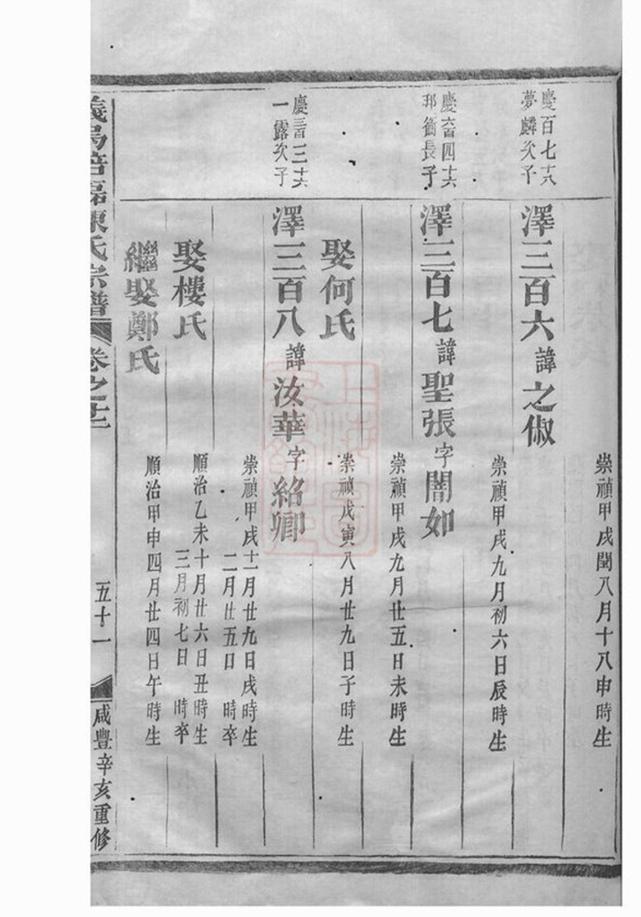 崇禎甲戌閏八月十八申時生
慶百七十六
夢麟次子
澤三百六諱之俶
崇禎甲戌九月初六日辰時生
慶六百四十六
邦衡長子
澤三百七諱聖張字闇如
崇禎甲戌九月廿五日未時生
娶何氏
崇禎戊寅八月廿九日子時生
慶三百三十六
一露次子
澤三百八諱汝華字紹卿
崇禎甲戌十一月廿九日戌時生
二月廿五日 時卒
娶樓氏
順治乙未十月廿六日丑時生
三月初七日 時卒
繼娶鄭氏
順治甲申四月廿四日午時生
義烏倍磊陳氏宗譜
卷之十二
五十一
咸豐辛亥重修